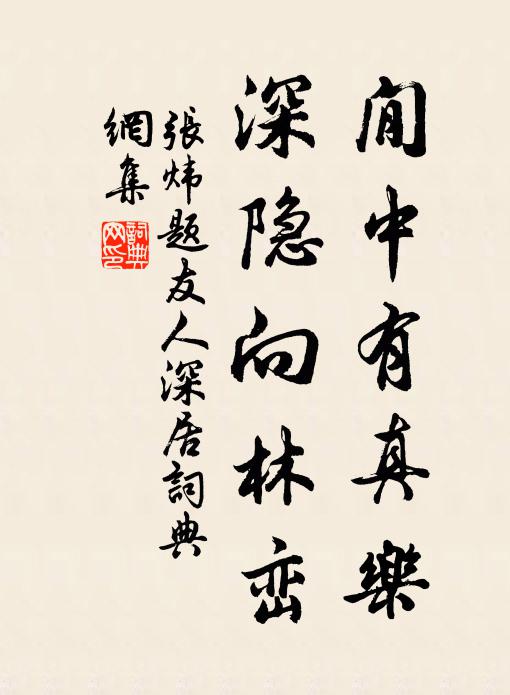 閒中有真樂
深隐向林峦
張炜题友人深居詞典
網集
詞典網印